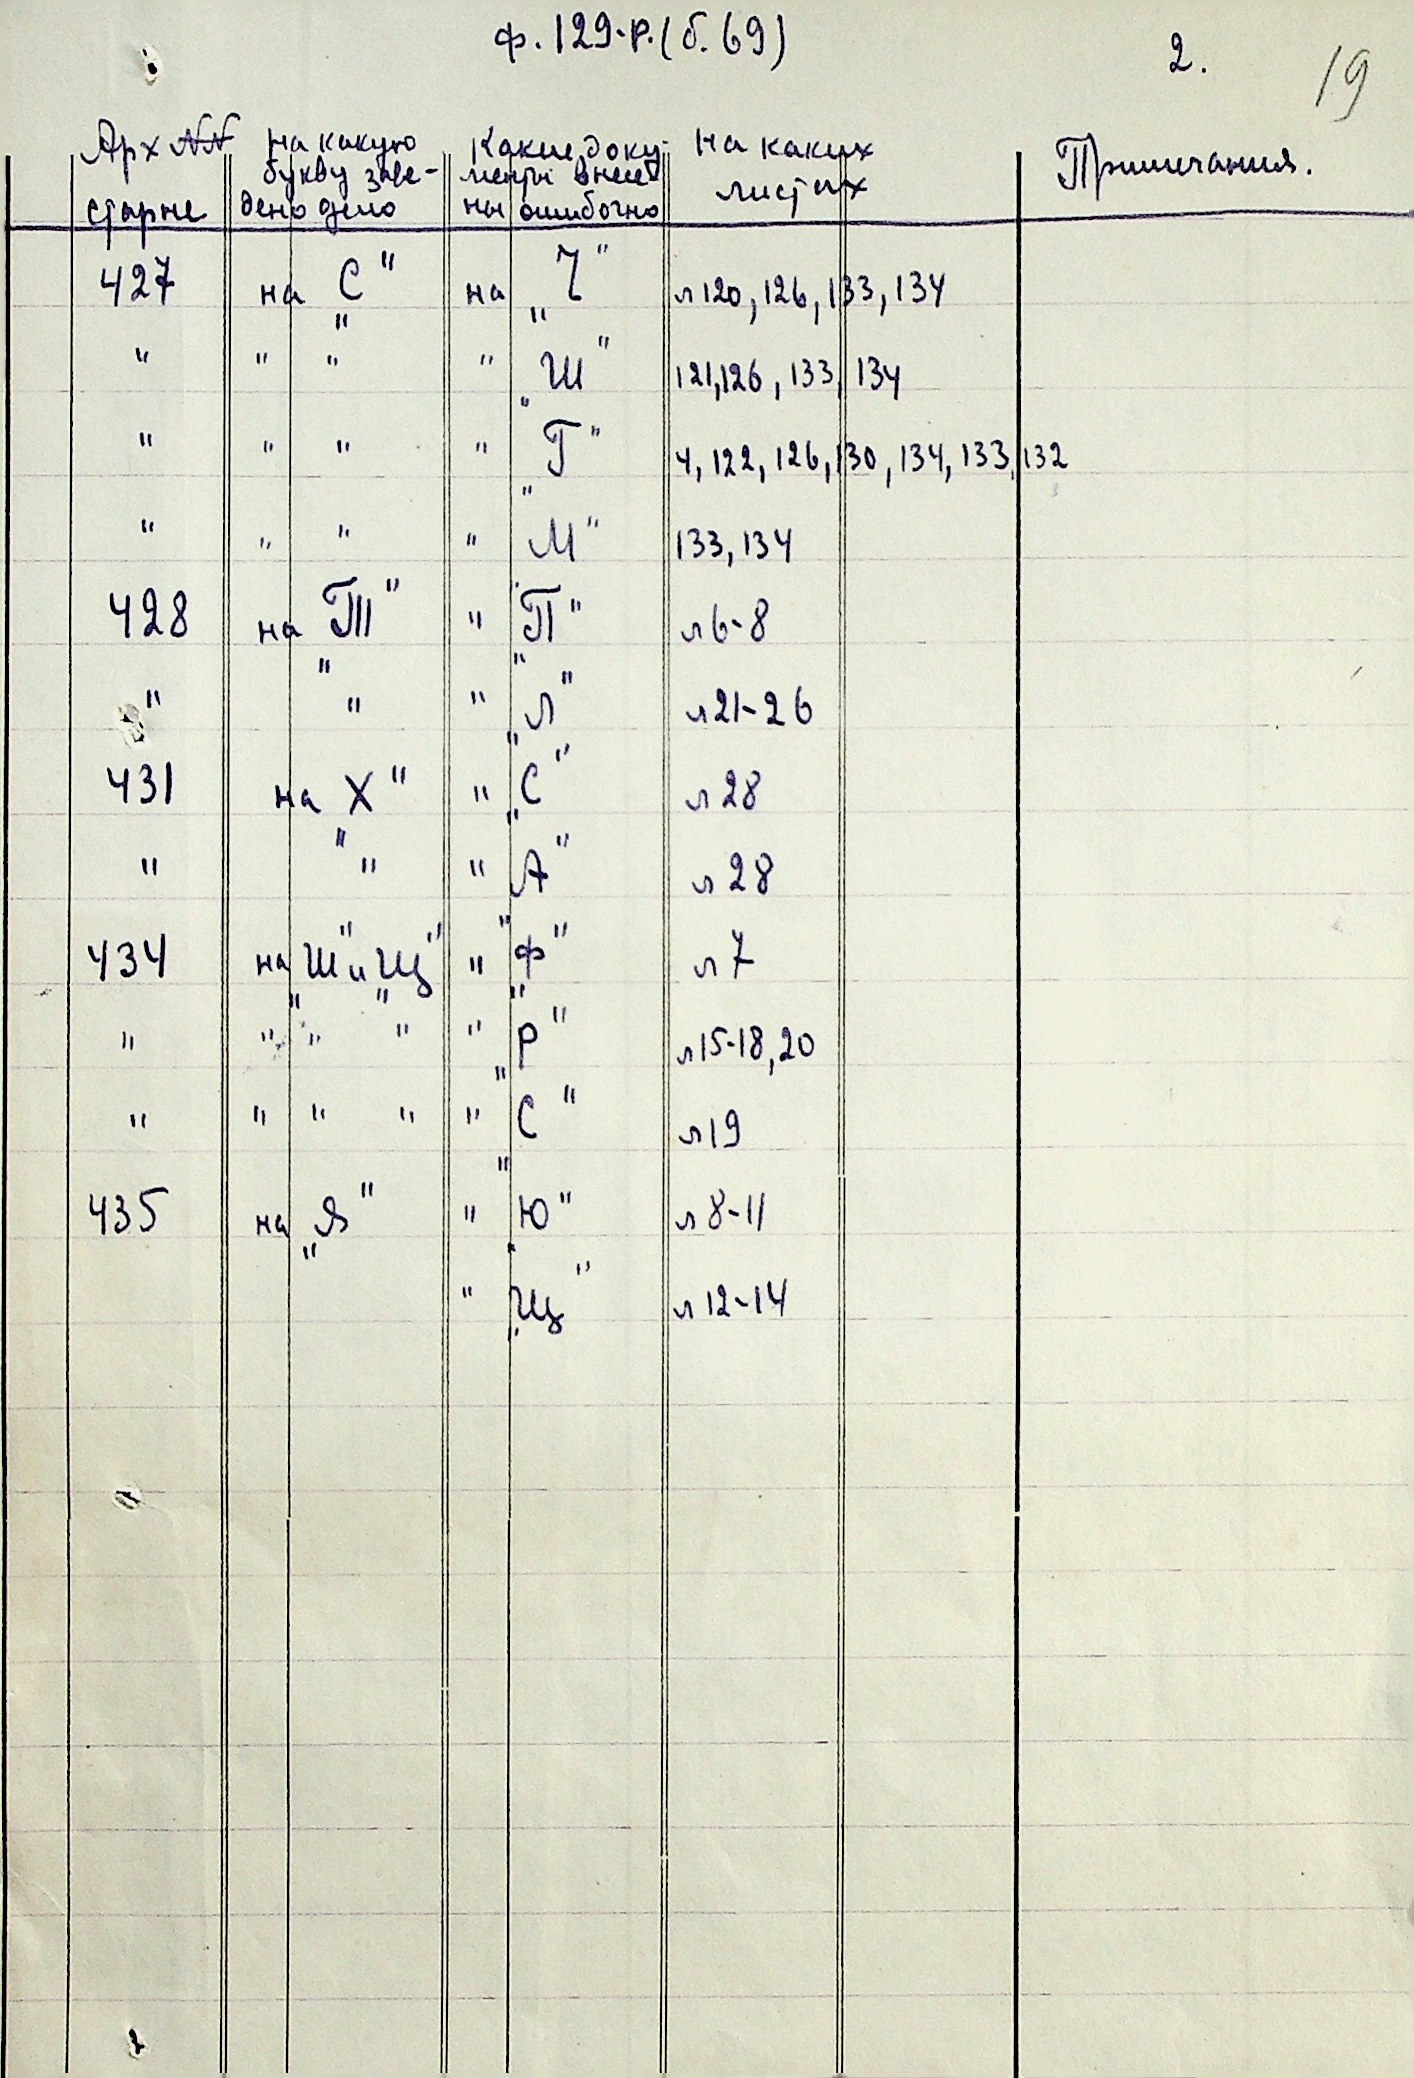 ф. 129-р. (б. 69)
2.
19
Арх №№ старые | На какую букву заве-дено дело | Какие доку-менты внесе-ны ошибочно | На каких листах | Примечания.
427 на „С" на „Ч" л 120, 126, 133, 134
" " " " „Ш" 121, 126, 133, 134
" " " " „Г" 4, 122, 126, 130, 134, 133, 132
" " " " „М" 133, 134
428 на „Т" " „П" л 6-8
" " " „Л" л 21-26
431 на „Х" " „С" л 28
" " " „А" л 28
434 на „Ш" и „Щ" " „Ф" л 7
" " " " " „Р" л 15-18, 20
" " " " " „С" л 19
435 на „Я" " „Ю" л 8-11
" „Щ" л 12-14